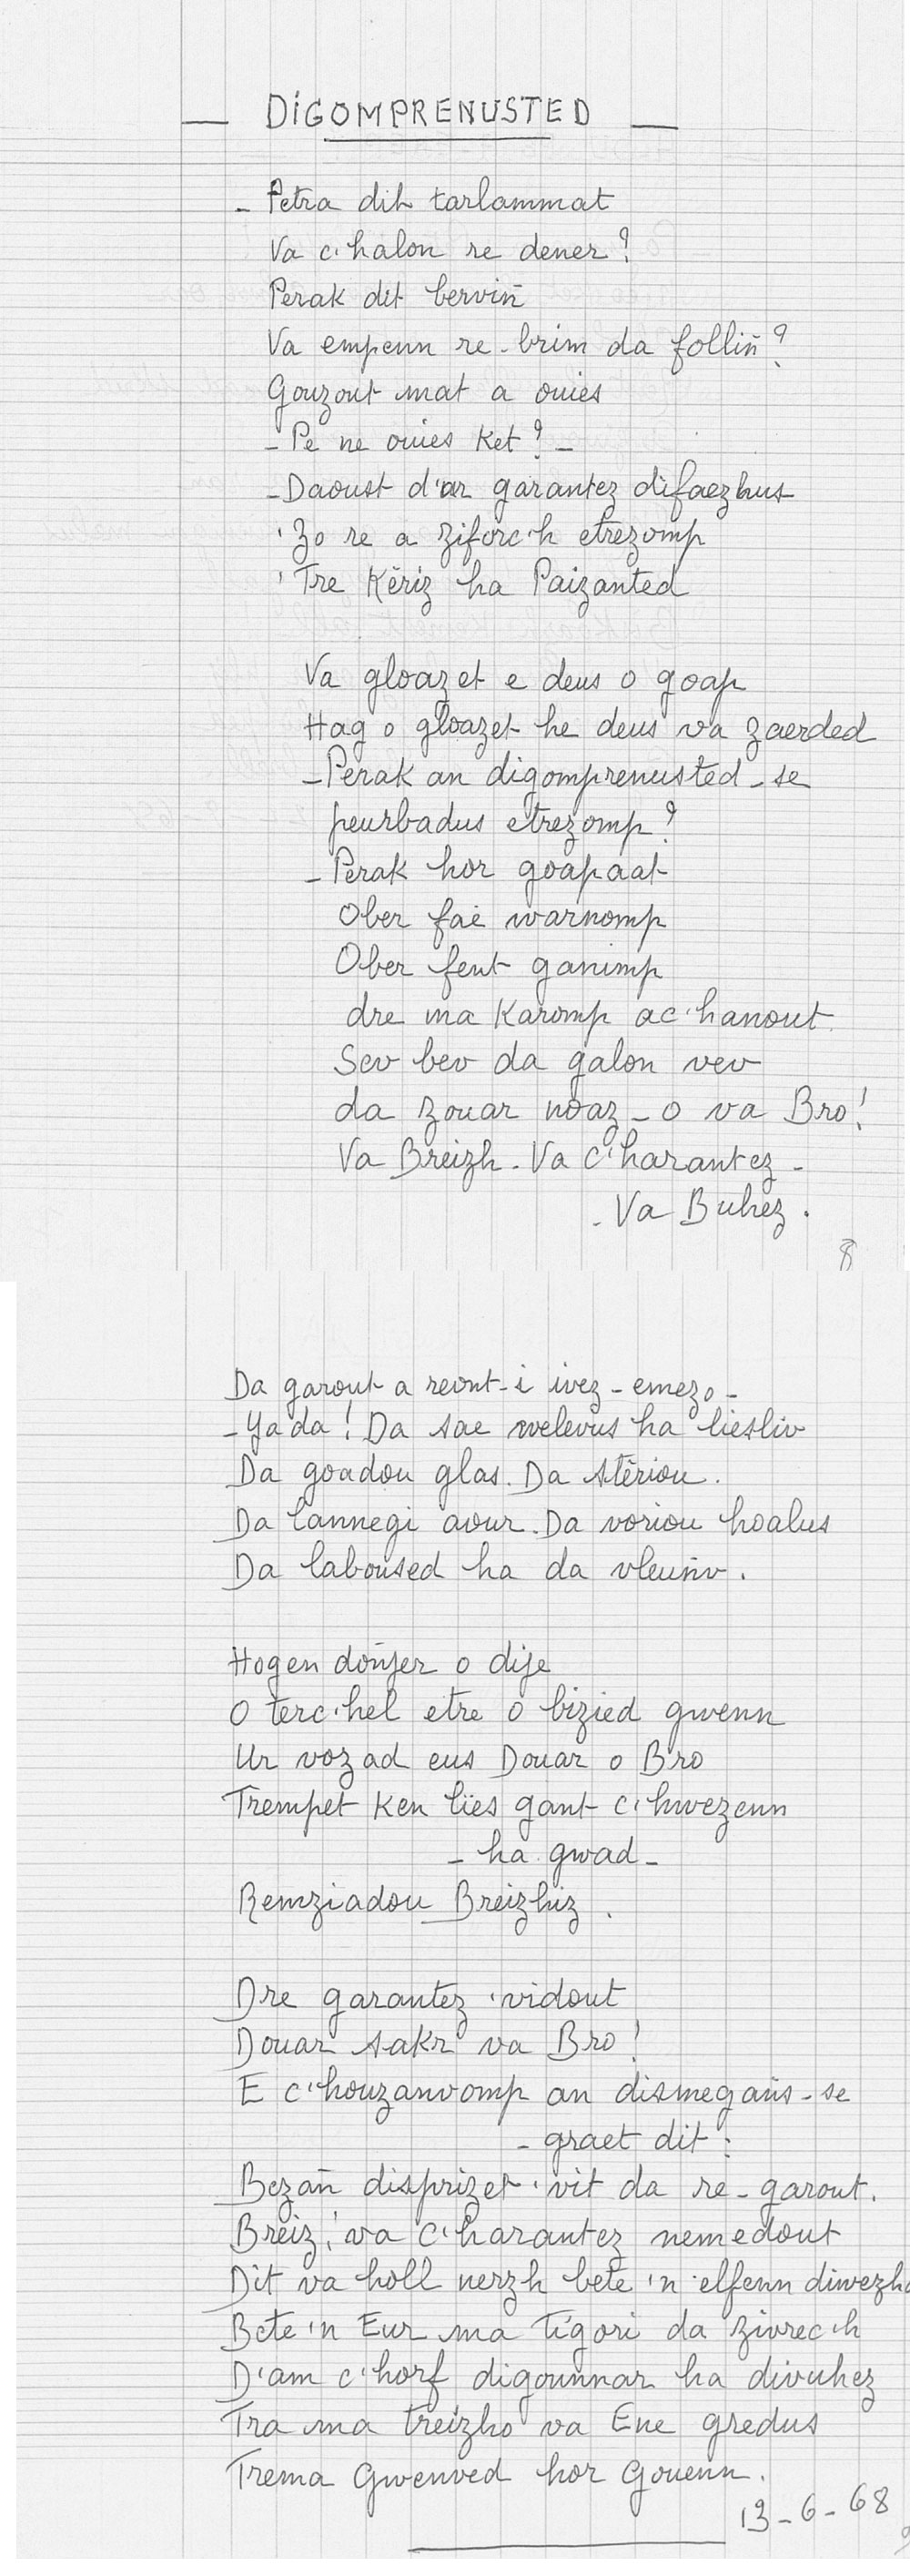 — DIGOMPRENUSTED —
- Petra dit tarlammat
Va c'halon re dener ?
Perak dit berviñ
Va empenn re-brim da folliñ ?
Gouzout mat a ouies
- Pe ne ouies ket ? -
- Daoust d'ar garantez difaezhus
'Zo re a ziforc'h etrezomp
'Tre Kêriz ha Paizanted
Va gloazet e deus o goap
Hag o gloazet he deus va zaerded
- Perak an digomprenusted-se
peurbadus etrezomp ?
- Perak hor goapaat
Ober fae warnomp
Ober fent ganimp
dre ma karomp ac'hanout
Sev bev da galon vev
da zouar noaz - o va Bro !
Va Breizh - Va c'harantez -
- Va Buhez .
8
Da garout a reont-i ivez - emezo -
- Ya da ! Da sae welevus ha liesliv
Da goadou glas. Da stêriou.
Da lannegi aour. Da voriou hoalus
Da laboused ha da vleuniv .
Hogen doñjer o dije
O terc'hel etre o bizied gwenn
Ur vozad eus Douar o Bro
Trempet ken lies gant c'hwezenn
- ha gwad -
Remziadou Breizhiz .
Dre garantez 'vidout
Douar sakr va Bro !
E c'houzanvomp an dismegañs-se
- graet dit :
Bezañ disprizet 'vit da re-garout.
Breiz, va c'harantez nemedout
Dit va holl nerzh bete 'n elfenn
Bete 'n Eur ma tigori da zivrec'h
D'am c'horf digounnar ha divuhez
Tra ma treizho va Ene gredus
Trema Gwenved hor Gouenn.
13-6-68